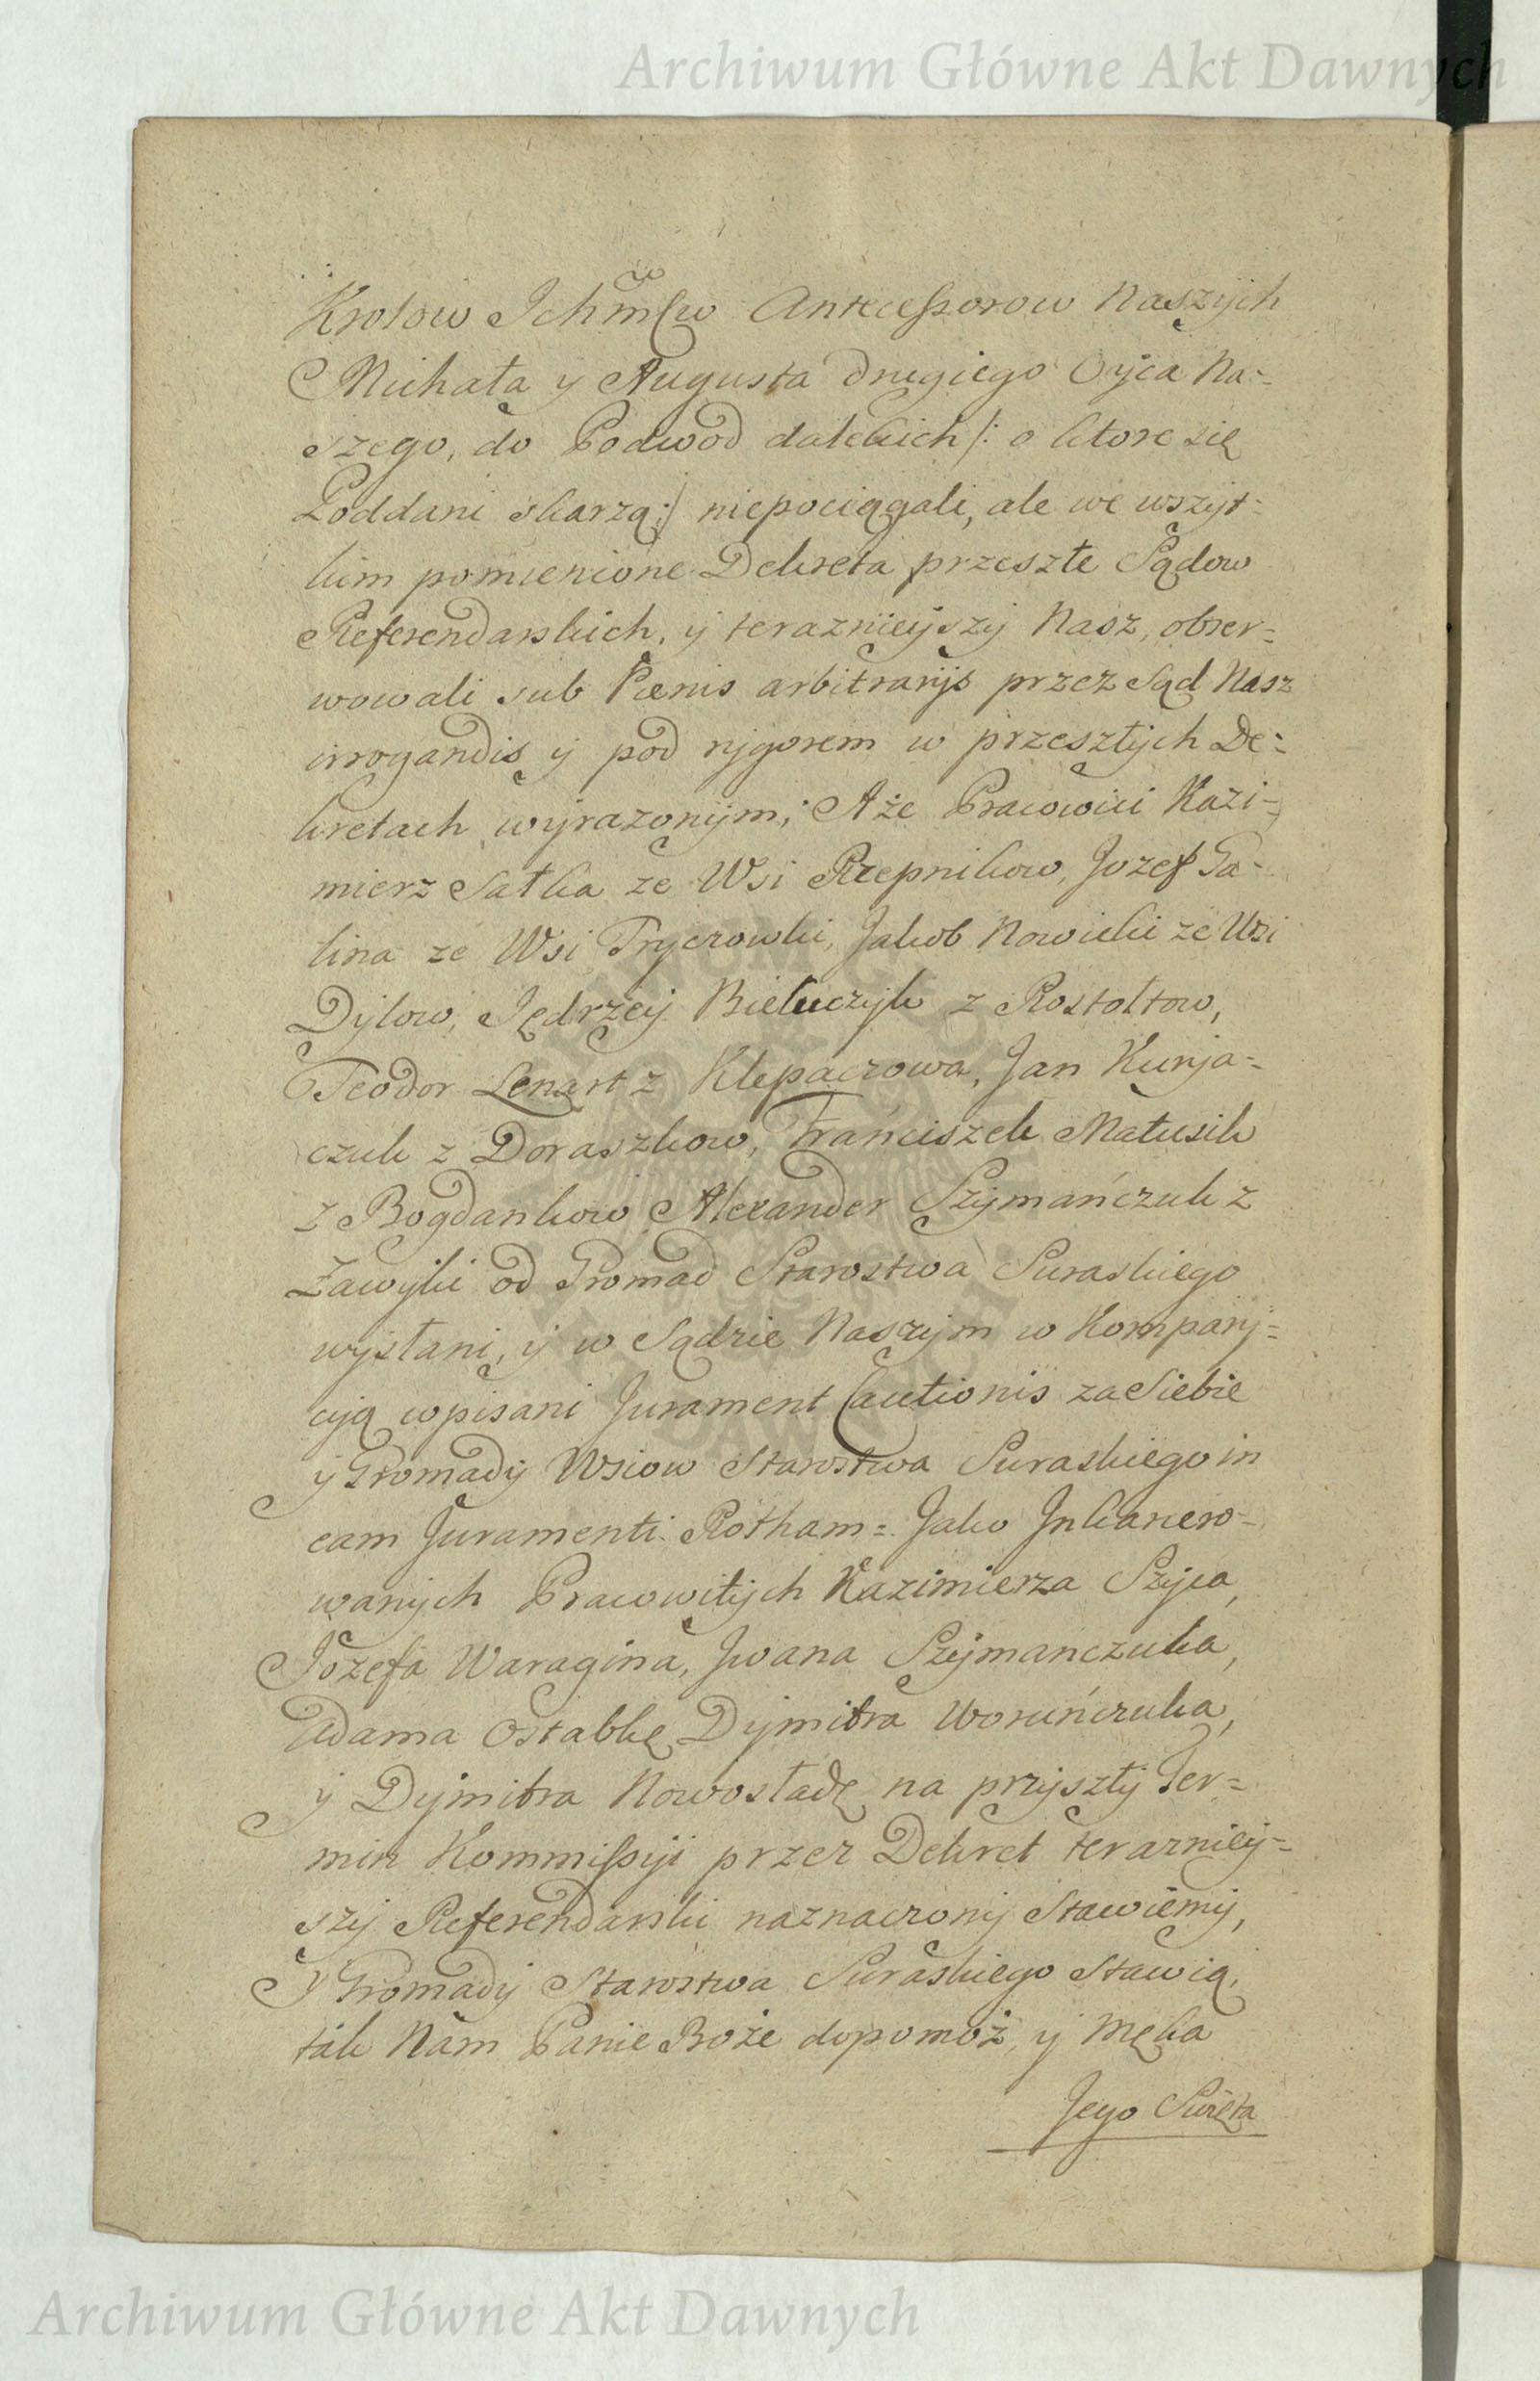 Archiwum Główne Akt Dawnych
Krolow Ichmſw Antecessorow Naszych
Michała y Augusta drugiego Oyca Na=
szego, do Podwod dalekich /: o ktore się
Poddani skarzą :/ niepociągali, ale we wszyt=
kim pomienione Dekreta przeszłe Sądow
Referendarskich, y teraznieyszy Nasz, obser=
wowali sub Pænis arbitrarijs przez Sąd Nasz
irrogandis y pod rygorem w przeszłych De=
kretach wyrazonym; Aże Pracowici Kazi=
mierz Satka ze Wsi Rzepnikow, Jozef Ga=
lina ze Wsi Tryczowki, Jakob Nowicki ze Wsi
Dylow, Jędrzey Bieluczyk z Rostołtow,
Teodor Lenart z Klepaczowa, Jan Kurja=
czuk z Doraszkow, Franciszek Matusik
z Bogdankow Alexander Szymańczuk z
Zawyki od Gromad Starostwa Suraskiego
wysłani, y w Sądzie Naszym w Kompary=
cyą wpisani Jurament Cautionis za Siebie
y Gromady Wsiow Starostwa Suraskiego in
eam Juramenti Rotham = Jako Inkarcero=
wanych Pracowitych Kazimierza Szyca,
Jozefa Waragina, Jwana Szymanczuka,
Adama Ostabkę Dymitra Woruńczuka,
y Dymitra Nowosładę na przyszły Ter=
min Kommissyi przez Dekret terazniey=
szy Referendarski naznaczony Stawiemy,
Y Gromady Starostwa Suraskiego Stawią,
tak Nam Panie Boże dopomoż, y Męka
Jego Swięta
Archiwum Główne Akt Dawnych